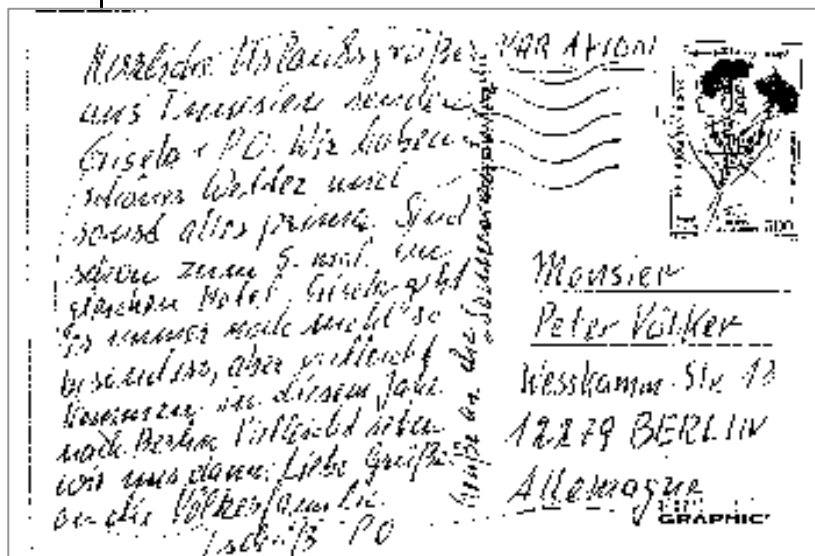 Herzliche Urlaubsgrüße
aus Tunesien senden
Gisela + PO. Wir haben
schönes Wetter und
sonst alles prima. Sind
schon zum 5. mal im
gleichen Hotel. Gisela geht
es immer noch nicht so
besonders, aber vielleicht
kommen in diesem Jahr
nach Berlin. Vielleicht sehen
wir uns dann. Liebe Grüße
an die Völkerfamilie.
Tschüß PO
Grüße an die
PAR AVION
Monsier
Peter Völker
Str. 13
12279 BERLIN
Allemagne
GRAPHIC